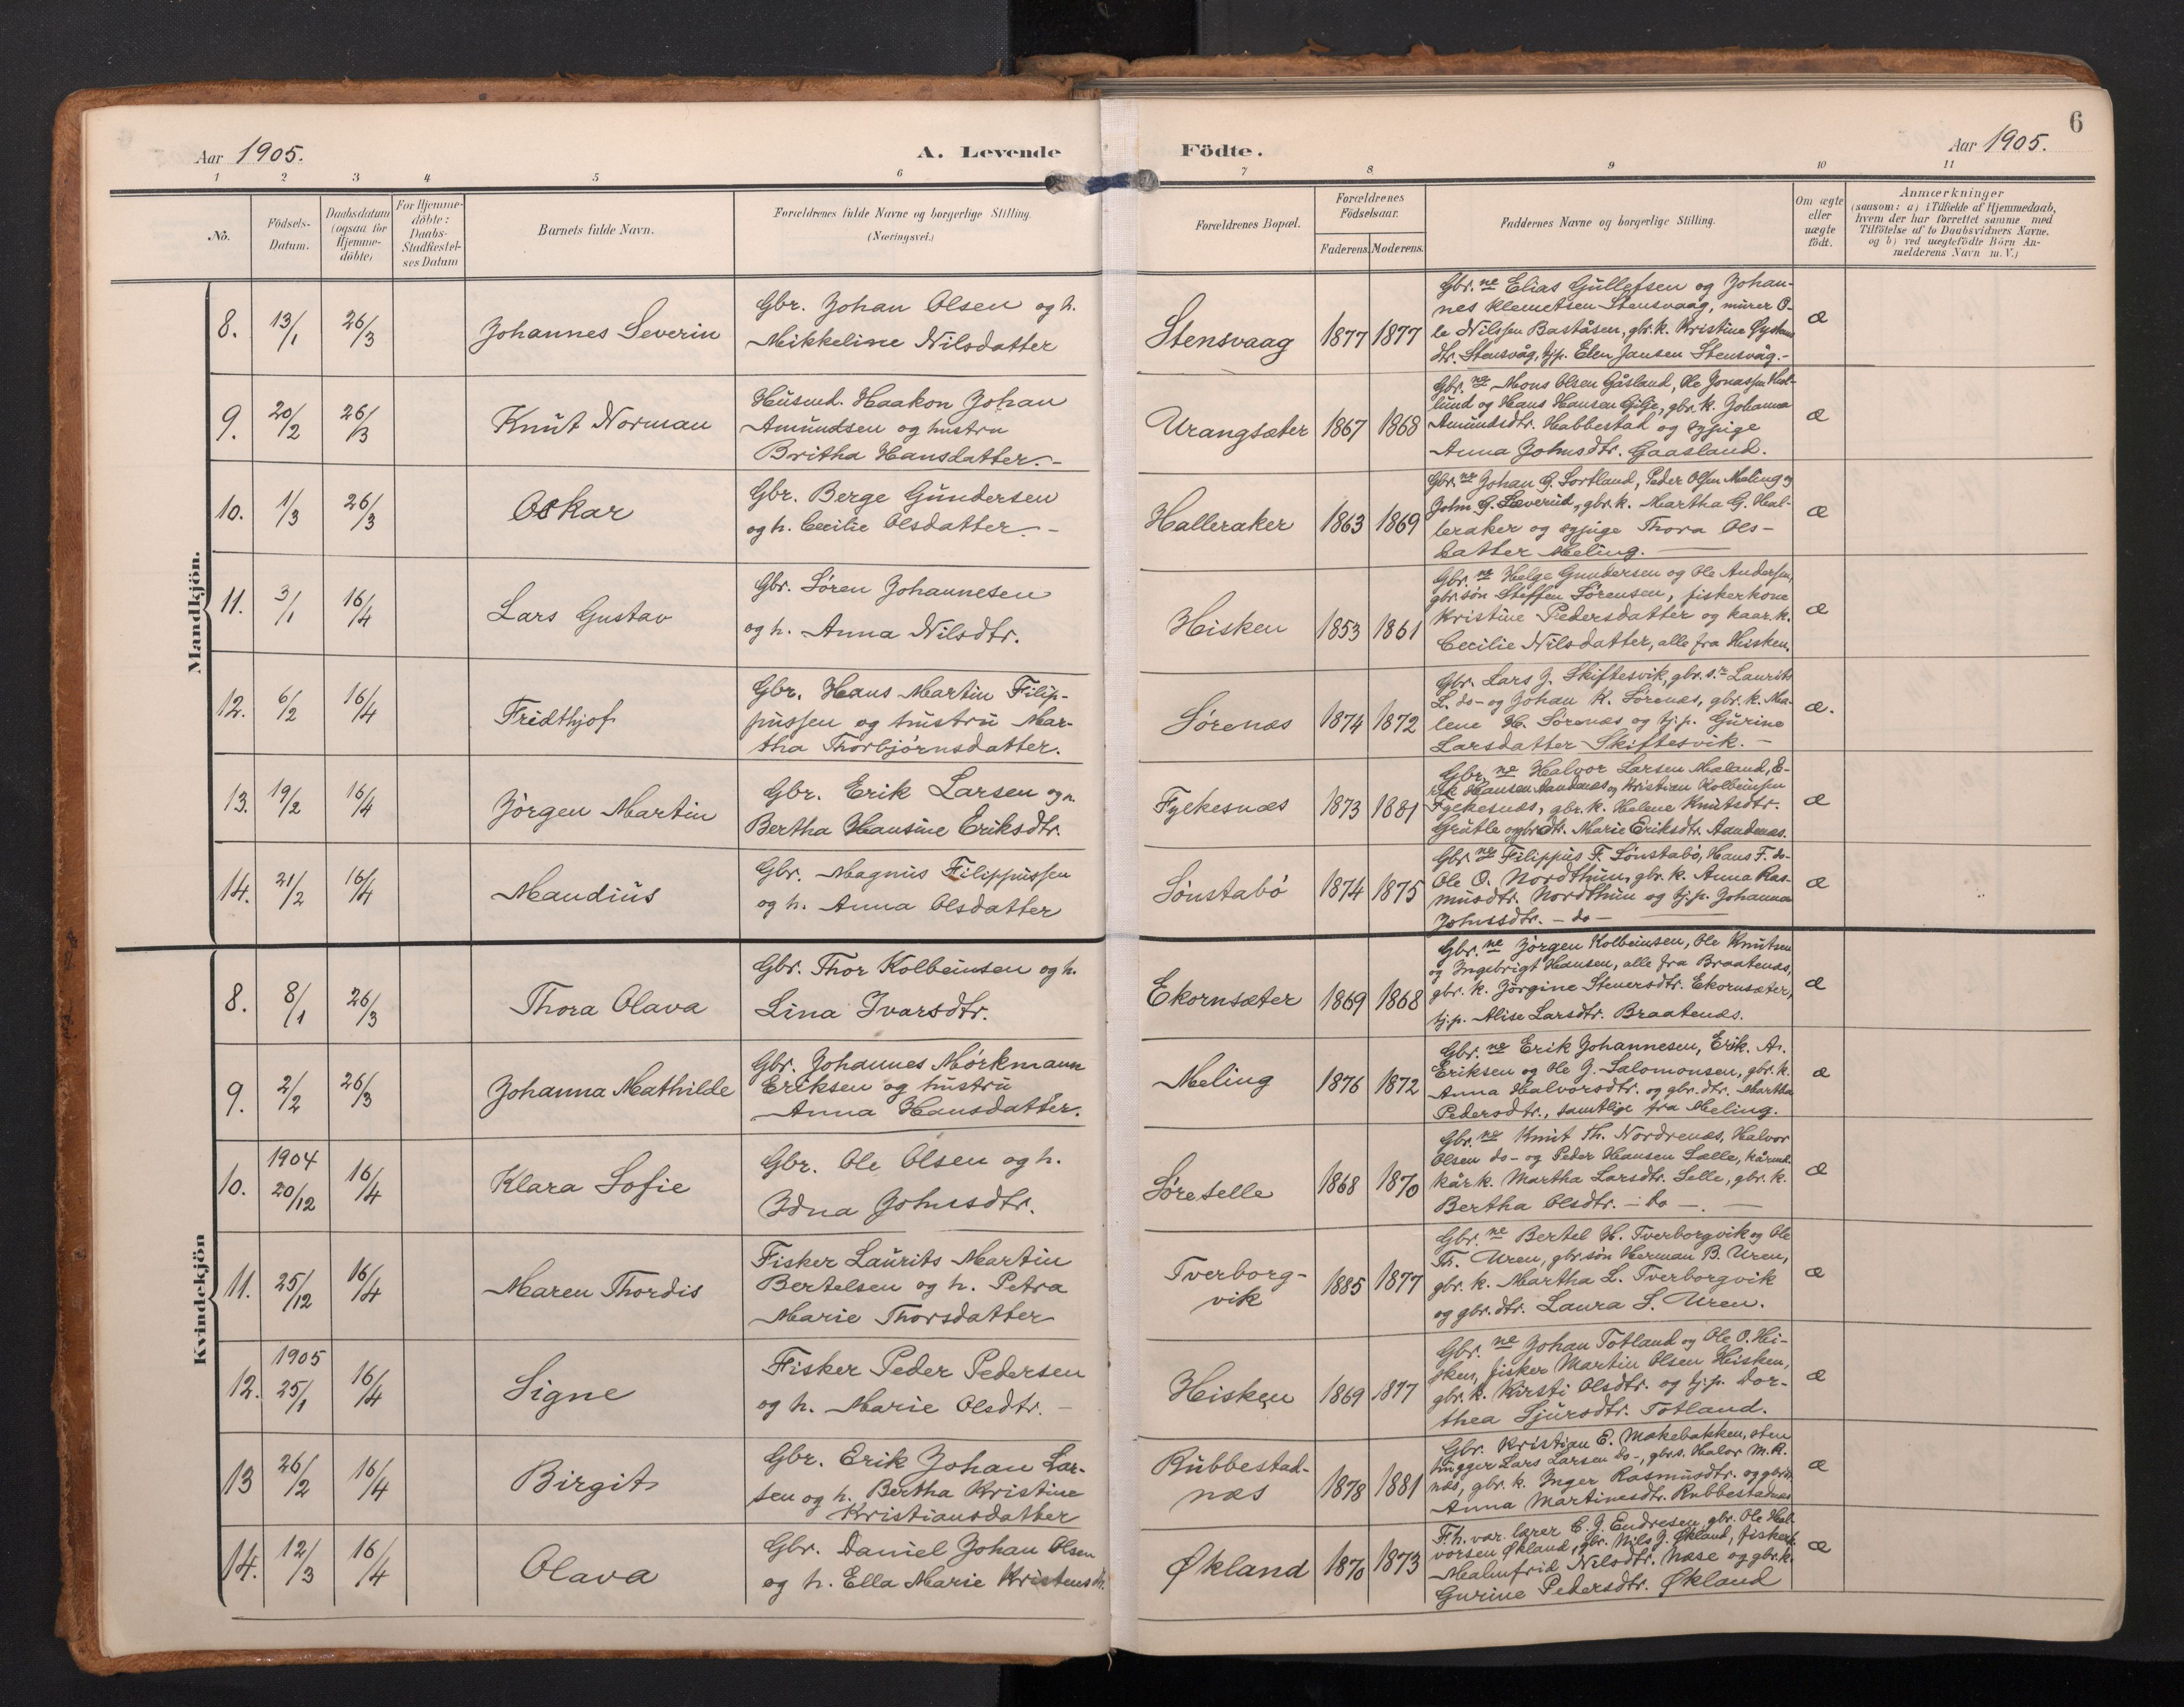 6
Aar 1905.
A. Levende
Födte.
Aar 1905.
1 2 3 4 5 6 7 8. 9 10 11
No.
Födsels-
Datum.
Daabsdatum
(ogsaa for
Hjemme-
döbte)
For Hjemme-
döbte:
Daabs-
Stadfæstel-
ses Datum
Barnets fulde Navn.
Forældrenes fulde Navne og borgerlige Stilling.
(Næringsvei.)
Forældrenes Bopæl.
Forældrenes
Födselsaar.
Faderens. Moderens.
Faddernes Navne og borgerlige Stilling.
Om ægte
eller
uægte
födt.
Anmærkninger
(saasom: a) i Tilfælde af Hjemmedaab,
hvem der har forrettet samme, med
Tilföielse af to Daabsvidners Navne.
og b) ved uægtefödte Börn An-
melderens Navn m. V.)
Mandkjön.
8. 13/1 26/3 Johannes Severin
Gbr. Johan Olsen og h.
Mikkeline Nilsdatter
Stensvaag 1877 1877
Gbr.ne Elias Gullefsen og Johan-
nes Klemetsen Stensvaag, murer O-
le Nilssen Baståsen, gbr. k. Kristine
dtr. Stensvåg, tj.p. Elen Jansen Stensvåg.-
æ
9. 20/2 26/3 Knut Norman
Husmd. Haakon Johan
Amundsen og hustru
Britha Hansdatter.-
Urangsæter 1867 1868
Gbr.ne Mons Olsen Gåsland, Ole Jonassen
lund og Hans Hansen Gilje, gbr. k. Johanna
Amundsdtr. Habbestad og sypige
Anna Johnsdtr. Gaasland.
æ
10. 1/3 26/3 Oskar
Gbr. Berge Gundersen
og h. Cecilie Olsdatter.-
Halleraker 1863 1869
Gbr.ne Johan G. Sortland, Peder Olsen Meling og
John G. Sæverud, gbr. k. Martha G. Hal-
leraker og sypige Thora Ols-
datter Meling.
æ
11. 3/1 16/4 Lars Gustav
Gbr. Søren Johannesen
og h. Anna Nilsdtr.
Hisken 1853 1861
Gbr.ne Helge Gundersen og Ole Andersen,
gbr.søn Steffen Sørensen, fiskerkone
Kristine Pedersdatter og kaar.k.
Cecilie Nilsdatter, alle fra Hisken.
æ
12. 6/2 16/4 Fridthjof
Gbr. Hans Martin Filip-
pussen og hustru Mar-
tha Thorbjørnsdatter.
Sørenæs 1874 1872
Gbr. Lars J. Skiftesvik, gbr. s. Laurits
L. do- og Johan K. Sørenæs, gbr. k. Ma-
lene H. Sørenæs og tj.p. Gurine
Larsdatter Skiftesvik.-
æ.
13. 19/2 16/4 Jørgen Martin
Gbr. Erik Larsen og h.
Bertha Hansine Eriksdtr.
Fylkesnæs 1873 1881
Gbr.ne Halvor Larsen Mæland, E-
rik Hansen Aandenæs og Kristian Kolbeinsen
Fylkesnæs, gbr. k. Helene Knutsdtr.
Grutle og gbr.dtr. Marie Eriksdtr. Aandenæs.
æ
14. 21/2 16/4 Mandius
Gbr. Magnus Filippussen
og h. Anna Olsdatter
Sønstabø 1874 1875
Gbr.ne Filippus F. Sønstabø, Hans F. do-
Ole O. Nordthun, gbr. k. Anna Ras-
musdtr. Nordthun og tj.p. Johanna
Johnsdtr. - do -
æ
Kvindekjön
8. 8/1 26/3 Thora Olava
Gbr. Thor Kolbeinsen og h.
Lina Ivarsdtr.
Ekornsæter 1869 1868
Gbr.ne Jørgen Kolbeinsen, Ole Knutsen
og Ingebrigt Hansen, alle fra Braatenæs,
gbr. k. Jørgine Steuersdtr. Ekornsæter,
tj.p. Alise Larsdtr. Braatenæs.
æ
9. 2/2 26/3 Johanna Mathilde
Gbr. Johannes Mørkmann
Eriksen og hustru
Anna Hansdatter.
Meling 1876 1872
Gbr.ne Erik Johannesen, Erik. A.
Eriksen og Ole J. Salomonsen, gbr. k.
Anna Halvorsdtr. og gbr. dtr. Martha
Pedersdtr., samtlige fra Meling.
æ
10. 1904 20/12 16/4 Klara Sofie
Gbr. Ole Olsen og h.
Idna Johnsdtr.
Søreselle 1868 1870
Gbr.ne Knut Th. Nordrenæs, Halvor
Olsen do- og Peder Hansen Lælle, kårmd.
kår k. Martha Larsdtr. Selle, gbr. k.
Bertha Olsdtr. - do -.
æ
11. 25/12 16/4 Maren Thordis
Fisker Laurits Martin
Bertelsen og h. Petra
Marie Thorsdatter
Tverborg-
vik
1885 1877
Gbr.ne Bertel H. Tverborgvik og Ole
Th. Uren, gbr.søn Herman B. Uren,
gbr. k. Martha L. Tverborgvik
og gbr. dtr. Laura S. Uren.
æ
12. 1905 25/1 16/4 Signe
Fisker Peder Pedersen
og h. Marie Olsdtr. -
Hisken 1869 1877
Gbr.ne Johan Totland og Ole O. Hi-
sken, fisker Martin Olsen Hisken,
gbr. k. Kirsti Olsdtr. og tj.p. Dor-
thea Sjursdtr. Totland.
æ
13 26/2 16/4 Birgit
Gbr. Erik Johan Lar-
sen og h. Bertha Kristine
Kristiansdatter
Rubbestad-
næs
1878 1881
Gbr. Kristian E. Møkebakken, sten
hugger Lars Larsen do-, gbr. s. Halvor M. R.
næs, gbr. k. Inger Rasmusdtr. og gbr.dt.
Anna Martinesdtr. Rubbestadnæs
æ
14. 12/3 16/4 Olava
Gbr. Daniel Johan Olsen
og h. Ella Marie Kristensdtr.
Økland 1870 1873
F.h. vær. lærer E. J. Endresen, gbr. Ole Hal-
vorsen Økland, gbr. Nils J. Økland, fiskerk.
Malmfrid Nilsdtr. Næse og gbr.k.
Gurine Pedersdtr. Økland
æ